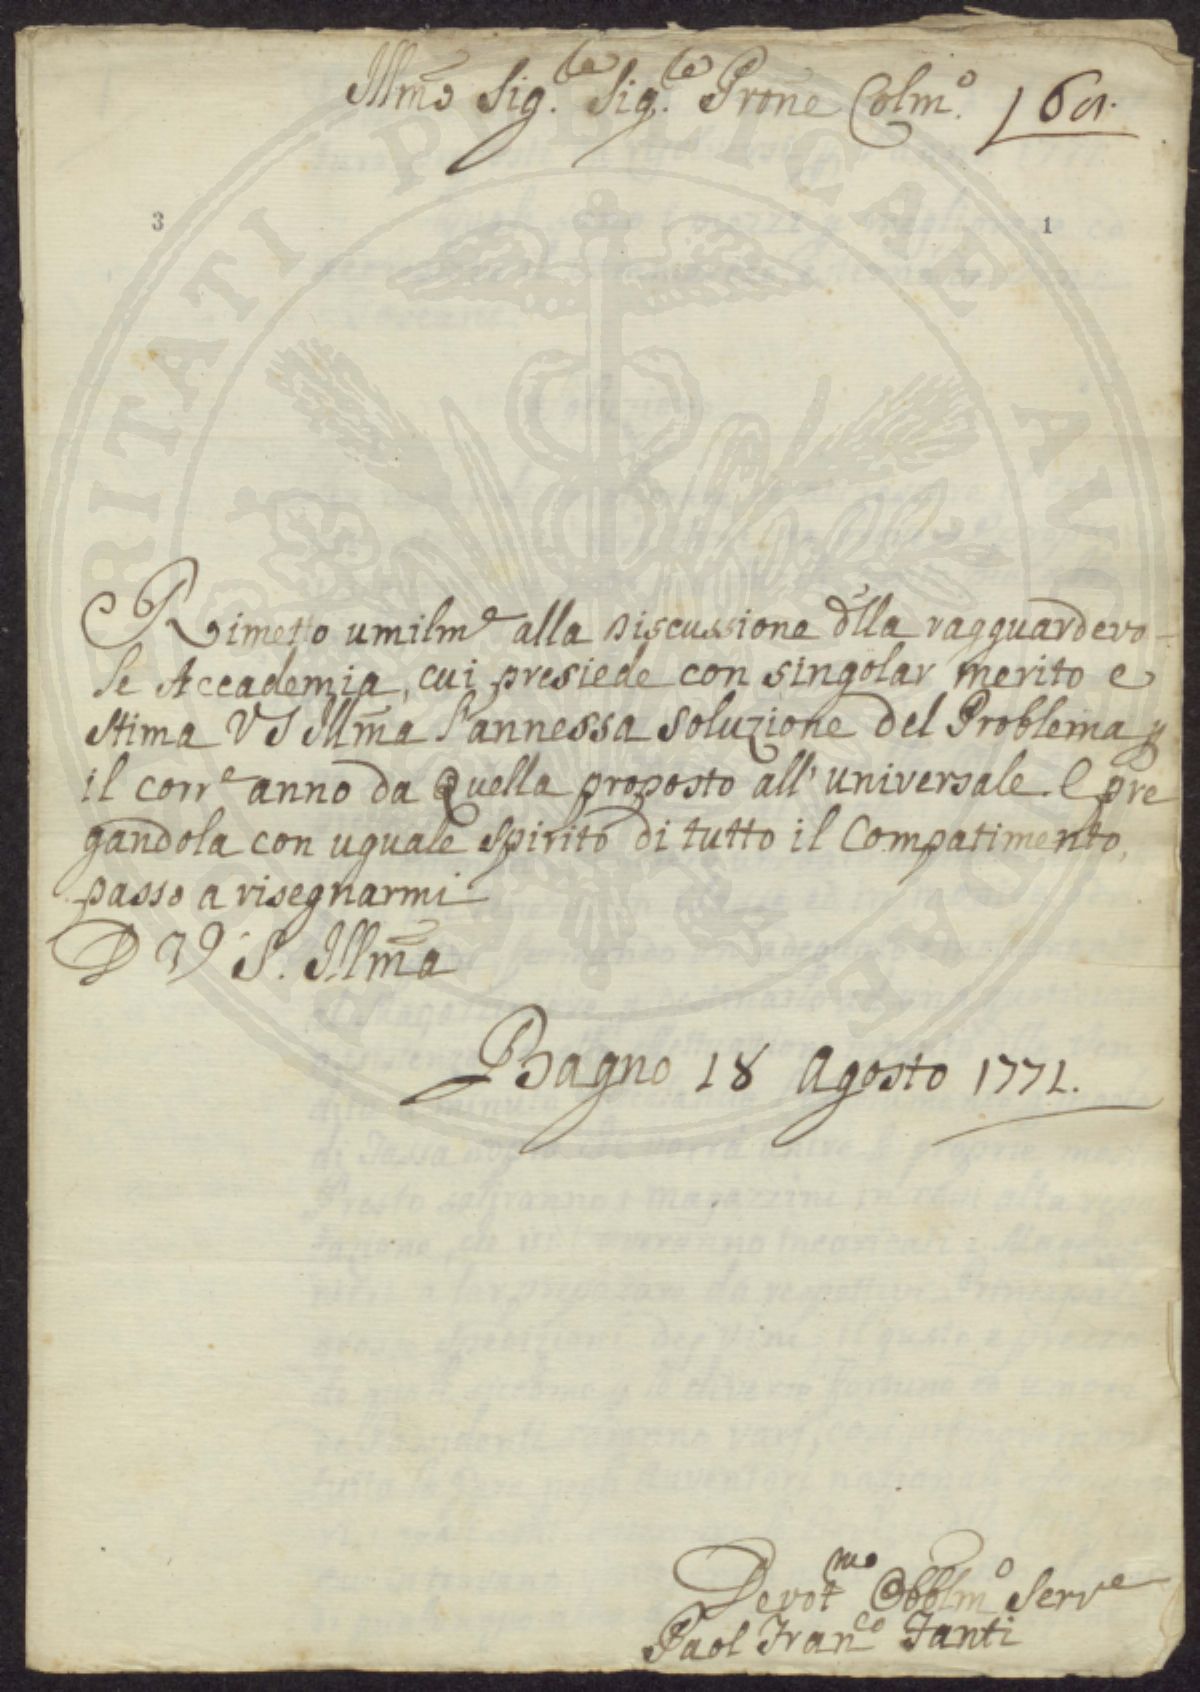 Illmo Sig.re Sig.re Prone Colmo.
3 1
Rimetto umilme alla discussione dlla ragguardevo-
le Accademia, cui presiede con singolar merito e
stima VS Illma l'annessa soluzione del Problema p
il corre anno da Quella proposto all'universale. E pre
gandola con uguale spirito di tutto il Compatimento,
passo a risegnarmi
D V S. Illma
Bagno 18 Agosto 1771.
Devotmo Obblmo Serve
Paol Franco Tanti
PUBLICAE